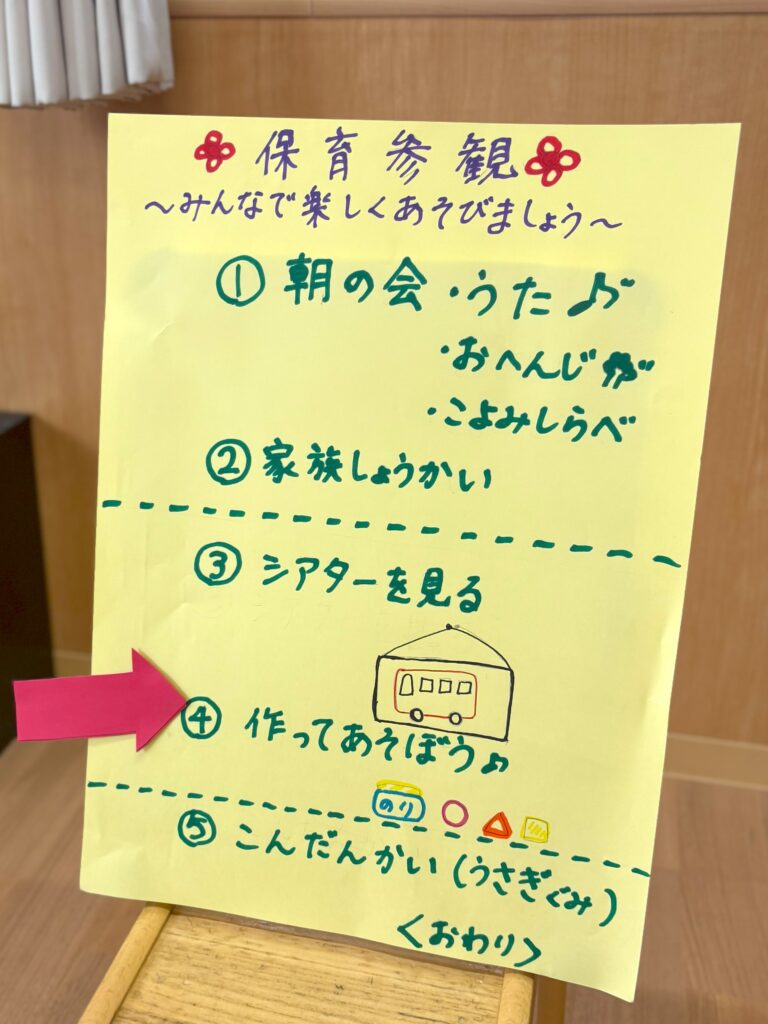 保育参観
～みんなで楽しくあそびましょう～
① 朝の会 ・うた♪
・おへんじ
・こよみしらべ
② 家族しょうかい
③ シアターを見る
④ 作ってあそぼう♪
のり
⑤ こんだんかい(うさぎぐみ)
<おわり>